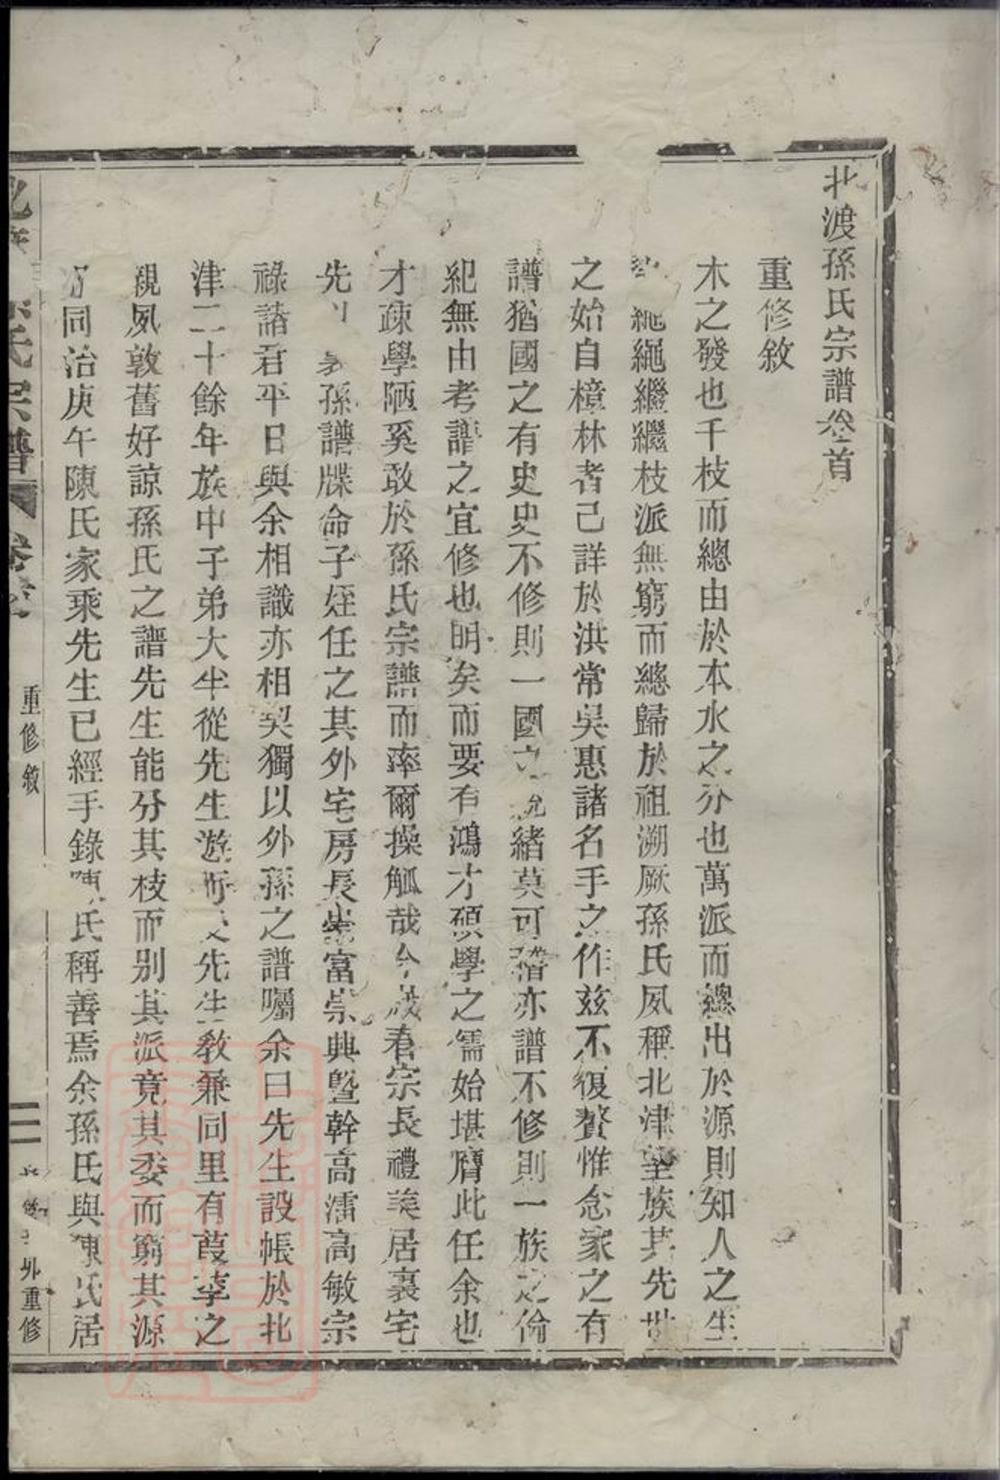 北渡孫氏宗譜卷首
重修敘
木之發也千枝而總由於本水之分也萬派而總出於源則知人之生
繩繩繼繼枝派無窮而總歸於祖溯厥孫氏夙稱北津望族其先世
之始自樟林者己詳於洪常吳惠諸名手之作玆不復贅惟念家之有
譜猶國之有史史不修則一國之統緒莫可稽亦譜不修則一族之倫
紀無由考譜之宜修也明矣而要有鴻才碩學之儒始堪膺此任余也
才疎學陋奚敢於孫氏宗譜而率爾操觚哉今歲春宗長禮美居裏宅
先以 孫譜牒命子姪任之其外宅房長崇富崇典曁幹高濡高敏宗
祿諸君平日與余相識亦相契獨以外孫之譜囑余曰先生設帳於北
津二十餘年族中子弟大半從先生遊而受先生教兼同里有葭莩之
親夙敦舊好諒孫氏之譜先生能分其枝而別其派竟其委而窮其源
同治庚午陳氏家乘先生已經手錄陳氏稱善焉余孫氏與陳氏居
孫氏宗譜 卷首 重修敘 二 外重修